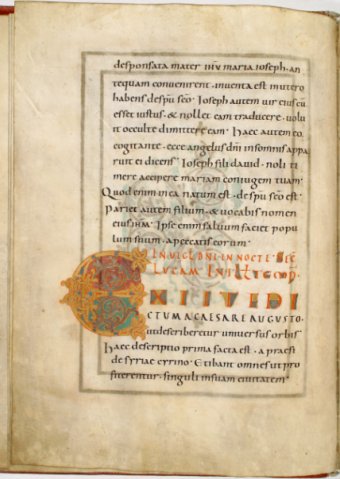 desponsata mater ihu maria ioseph · an
tequam convenirent · inventa est in utero
habens despu sco · Ioseph autem vir eius cu
esset iustus · & nollet eam traducere · volu
it occulte dimittere eam · Haec autem eo
cogitante · ecce angelus dni in somnis appa
ruit ei dicens · Ioseph fili david · noli ti
mere accipere mariam coniugem tuam ·
Quod enim in ea natum est · de spu sco est ·
Pariet autem filium · & vocabis nomen
eius ihm · Ipse enim salvum faciet popu
lum suum · a peccatis eorum ·
IN VIG DNI IN NOCTE
LUCAM IN ILL
EXIIT EDI
CTUM A CAESARE AUGUSTO ·
ut describeretur universus orbis
Haec descriptio prima facta est · a praesi
de syriae cyrino · Et ibant omnes ut pro
fiterentur · singuli in suam civitatem ·